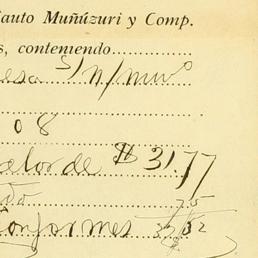 auto Muñúzuri y Comp.
s, conteniendo
esa S/n/muo
08
valor de $ 31.77
75
Conformes 32/52